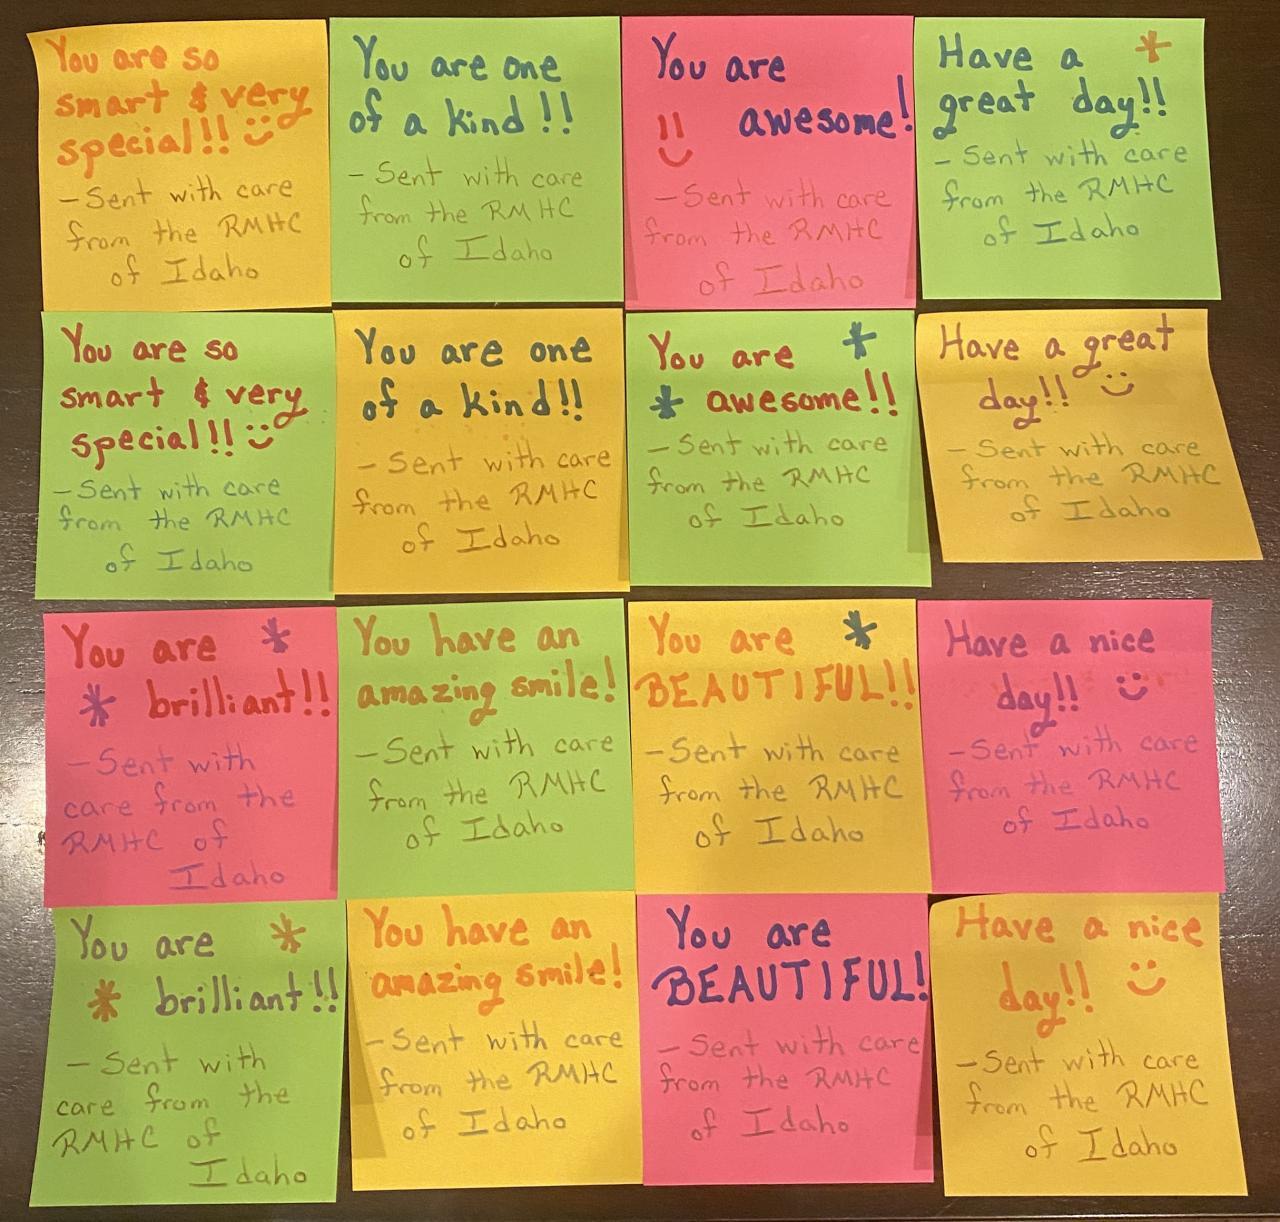 You are so
smart & very
special!!
- Sent with care
from the RMHC
of Idaho
You are one
of a kind!!
- Sent with care
from the RMHC
of Idaho
You are
awesome!
!!
- Sent with care
from the RMHC
of Idaho
Have a *
great day!!
- Sent with care
from the RMHC
of Idaho
You are so
smart & very
special!!
- Sent with care
from the RMHC
of Idaho
You are one
of a kind!!
- Sent with care
from the RMHC
of Idaho
You are *
* awesome!!
- Sent with care
from the RMHC
of Idaho
Have a great
day!!
- Sent with care
from the RMHC
of Idaho
You are *
* brilliant!!
- Sent with
care from the
RMHC of
Idaho
You have an
amazing smile!
- Sent with care
from the RMHC
of Idaho
You are *
BEAUTIFUL!!
- Sent with care
from the RMHC
of Idaho
Have a nice
day!!
- Sent with care
from the RMHC
of Idaho
You are *
* brilliant!!
- Sent with
care from the
RMHC of
Idaho
You have an
amazing smile!
- Sent with care
from the RMHC
of Idaho
You are
BEAUTIFUL!
- Sent with care
from the RMHC
of Idaho
Have a nice
day!!
- Sent with care
from the RMHC
of Idaho